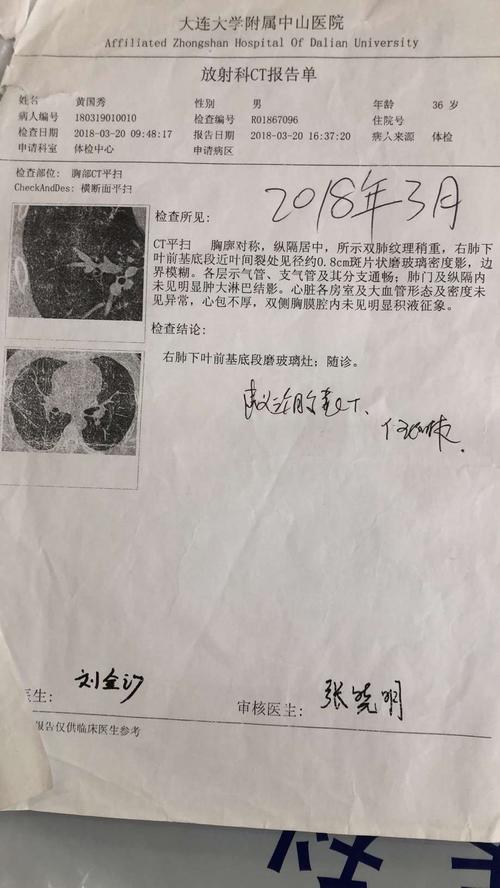 大连大学附属中山医院
Affiliated Zhongshan Hospital Of Dalian University
放射科CT报告单
姓名 黄国秀 性别 男 年龄 36 岁
病人编号 180319010010 检查编号 R01867096 住院号
检查日期 2018-03-20 09:48:17 报告日期 2018-03-20 16:37:20 病人来源 体检
申请科室 体检中心 申请病区
检查部位: 胸部CT平扫
CheckAndDes: 横断面平扫
2018年3月
检查所见:
CT平扫 胸廓对称,纵隔居中,所示双肺纹理稍重,右肺下
叶前基底段近叶间裂处见径约0.8cm斑片状磨玻璃密度影,边
界模糊。各层示气管、支气管及其分支通畅;肺门及纵隔内
未见明显肿大淋巴结影。心脏各房室及大血管形态及密度未
见异常,心包不厚,双侧胸膜腔内未见明显积液征象。
检查结论:
右肺下叶前基底段磨玻璃灶;随诊。
医生: 刘金汐
审核医生: 张晓明
报告仅供临床医生参考